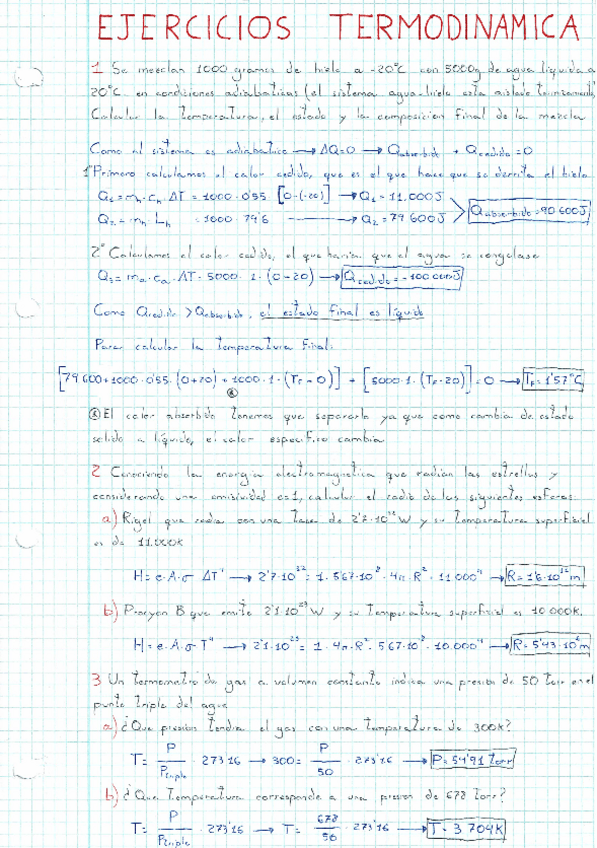 EJERCICIOS TERMODINAMICA
1 Se mezclan 1000 gramos de hielo a -20°C con 5000g de agua líquida a
20°C en condiciones adiabaticas (el sistema agua-hielo esta aislado termicamente)
Calcular la temperatura, el estado y la composición final de la mezcla
Como el sistema es adiabatico → ΔQ=0 → Qabsorbido + Qcedido = 0
1º Primero calculamos el calor cedido, que es el que hace que se derrita el hielo
Q1 = mh · ch · ΔT = 1000 · 0'55 [0-(-20)] → Q1 = 11.000J
Q2 = mh · Lh = 1000 · 79'6 → Q2 = 79 600J
Qabsorbido = 90 600J
2º Calculamos el calor cedido, el que haria que el agua se congelase
Q3 = ma · ca · ΔT = 5000 · 1 · (0-20) → Qcedido = -100 000J
Como Qcedido > Qabsorbido, el estado final es líquido
Para calcular la temperatura final:
[79 600 + 1000 · 0'55 · (0+20) + 1000 · 1 · (TF - 0)] + [5000 · 1 · (TF - 20)] = 0 → TF = 1'57°C
El calor absorbido tenemos que separarlo ya que como cambia de estado
solido a líquido, el calor especifico cambia
2 Conociendo la energia electromagnetica que radian las estrellas y
considerando una emisividad es 1, calcular el radio de las siguientes esferas:
a) Rigel que radia con una tasa de 2'7 · 10³² W y su temperatura superficial
es de 11.000K
H = e · A · σ ΔT⁴ → 2'7 · 10³² = 1 · 5'67 · 10⁻⁸ · 4π · R² · 11 000⁴ → R = 1'6 · 10¹¹ m
b) Procyon B que emite 2'1 · 10²³ W y su temperatura superficial es 10 000K.
H = e · A · σ T⁴ → 2'1 · 10²³ = 1 · 4π · R² · 5'67 · 10⁻⁸ · 10.000⁴ → R = 5'43 · 10⁶ m
3 Un termometro de gas a volumen constante indica una presion de 50 torr en el
punto triple del agua
a) ¿Que presion tendra el gas con una temperatura de 300K?
T = P / Ptriple · 273'16 → 300 = P / 50 · 273'16 → P = 54'91 torr
b) ¿Que temperatura corresponde a una presion de 678 torr?
T = P / Ptriple · 273'16 → T = 678 / 50 · 273'16 → T = 3 704K